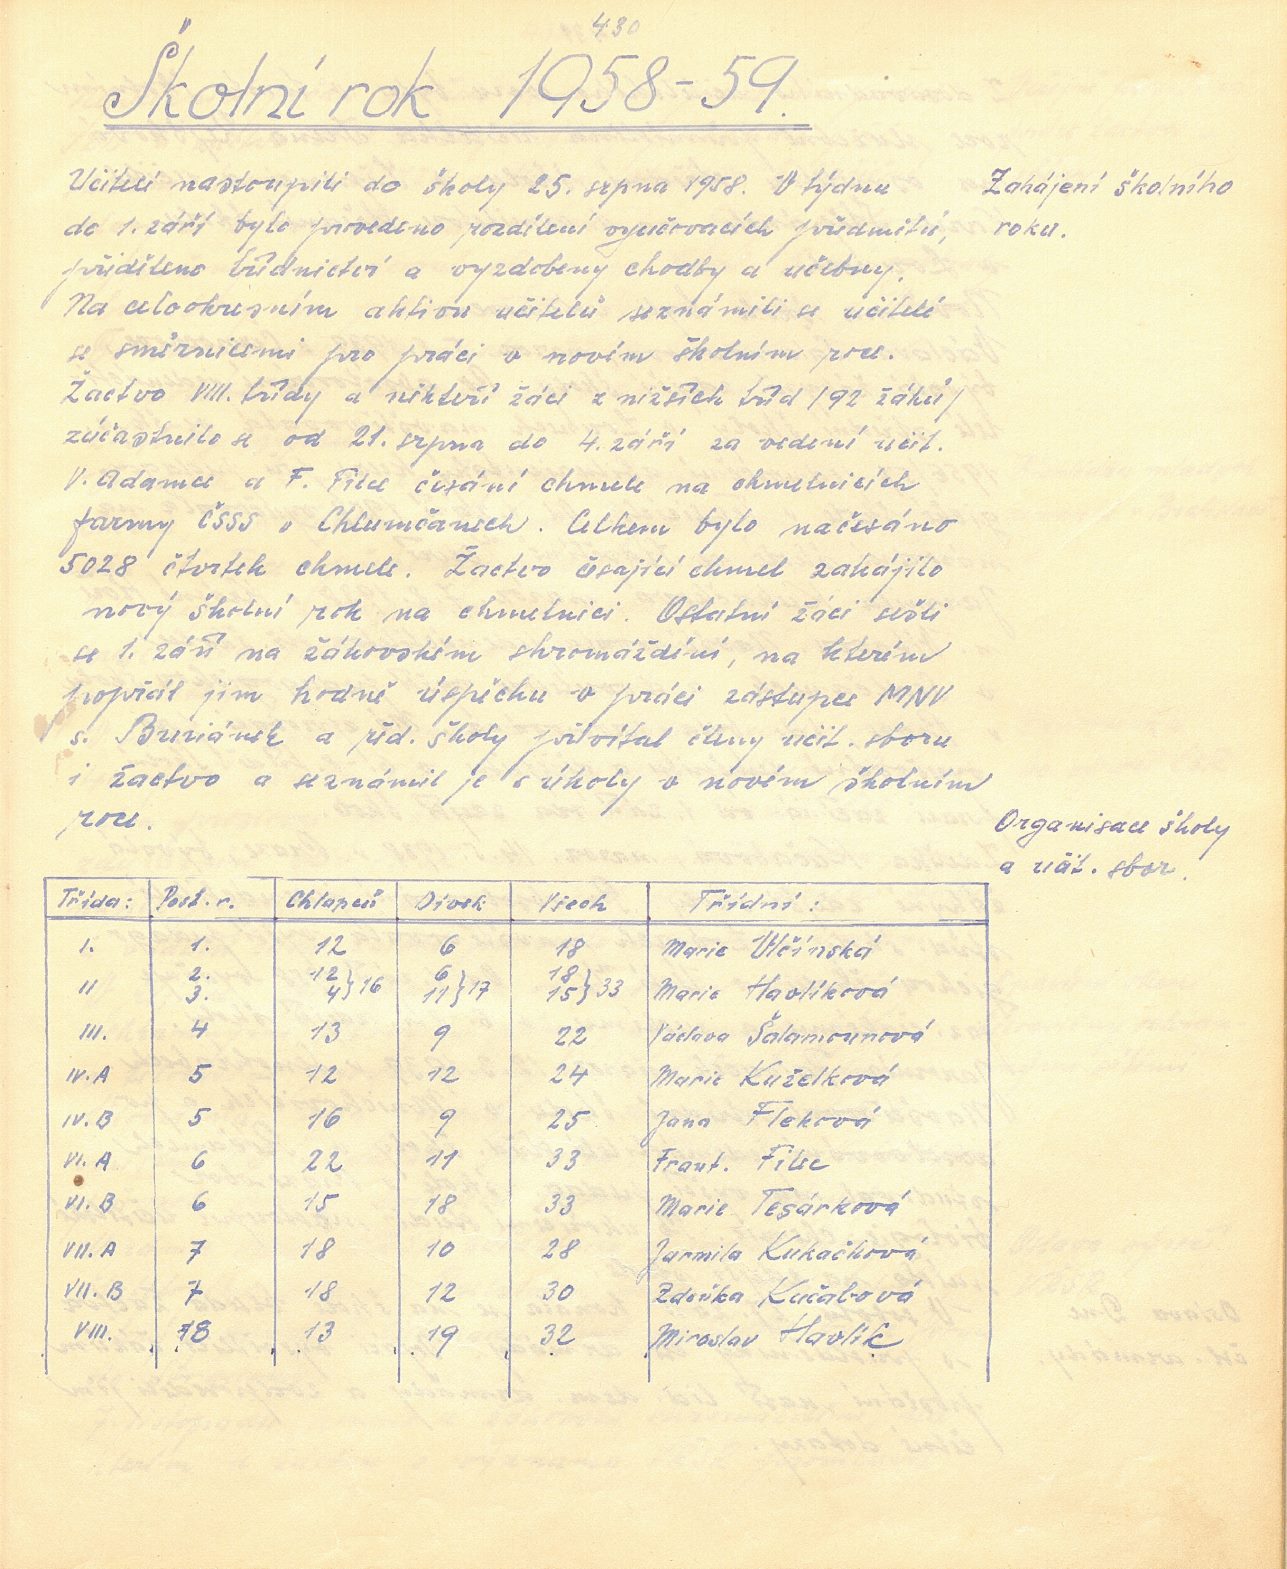 430
Školní rok 1958-59.
Učitelé nastoupili do školy 25. srpna 1958. V týdnu
do 1. září bylo provedeno rozdělení vyučovacích předmětů,
přiděleno třídnictví a vyzdobeny chodby a učebny.
Na celookresním aktivu učitelů seznámili se učitelé
se směrnicemi pro práci v novém školním roce.
Žactvo VIII. třídy a někteří žáci z nižších tříd /92 žáků/
zúčastnilo se od 21. srpna do 4. září za vedení učit.
V. Adamce a F. Filce česání chmele na chmelnicích
farmy ČSSS v Chlumčanech. Celkem bylo načesáno
5028 čtvrtek chmele. Žactvo česající chmel zahájilo
nový školní rok na chmelnici. Ostatní žáci sešli
se 1. září na žákovském shromáždění, na kterém
popřál jim hodně úspěchu v práci zástupce MNV
s. Buriánek a řed. školy přivítal členy učit. sboru
i žactvo a seznámil je s úkoly v novém školním
roce.
Zahájení školního
roku.
Organisace školy
a učit. sbor.
Třída: Post. r. Chlapců Dívek Všech Třídní:
I. 1. 12 6 18 Marie Vlčínská
II 2. 3. 12 4 } 16 6 11 } 17 18 15 } 33 Marie Havlíková
III. 4 13 9 22 Václava Šalamounová
IV. A 5 12 12 24 Marie Kuželková
IV. B 5 16 9 25 Jana Fleková
VI. A 6 22 11 33 Frant. Filec
VI. B 6 15 18 33 Marie Tesárková
VII. A 7 18 10 28 Jarmila Kukačková
VII. B 7 18 12 30 Zdeňka Kučabová
VIII. 8 13 19 32 Miroslav Havlík